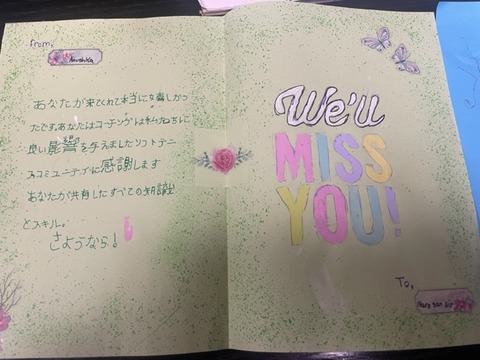 From,
Anushka
あなたが来てくれて本当に嬉しかっ
たです。あなたはコーチングは私たちに
良い影響を与えましたソフトテニ
スコミュニティに感謝します
あなたが共有したすべての知識
とスキル。
さようなら!
We'll
MISS
YOU!
To,